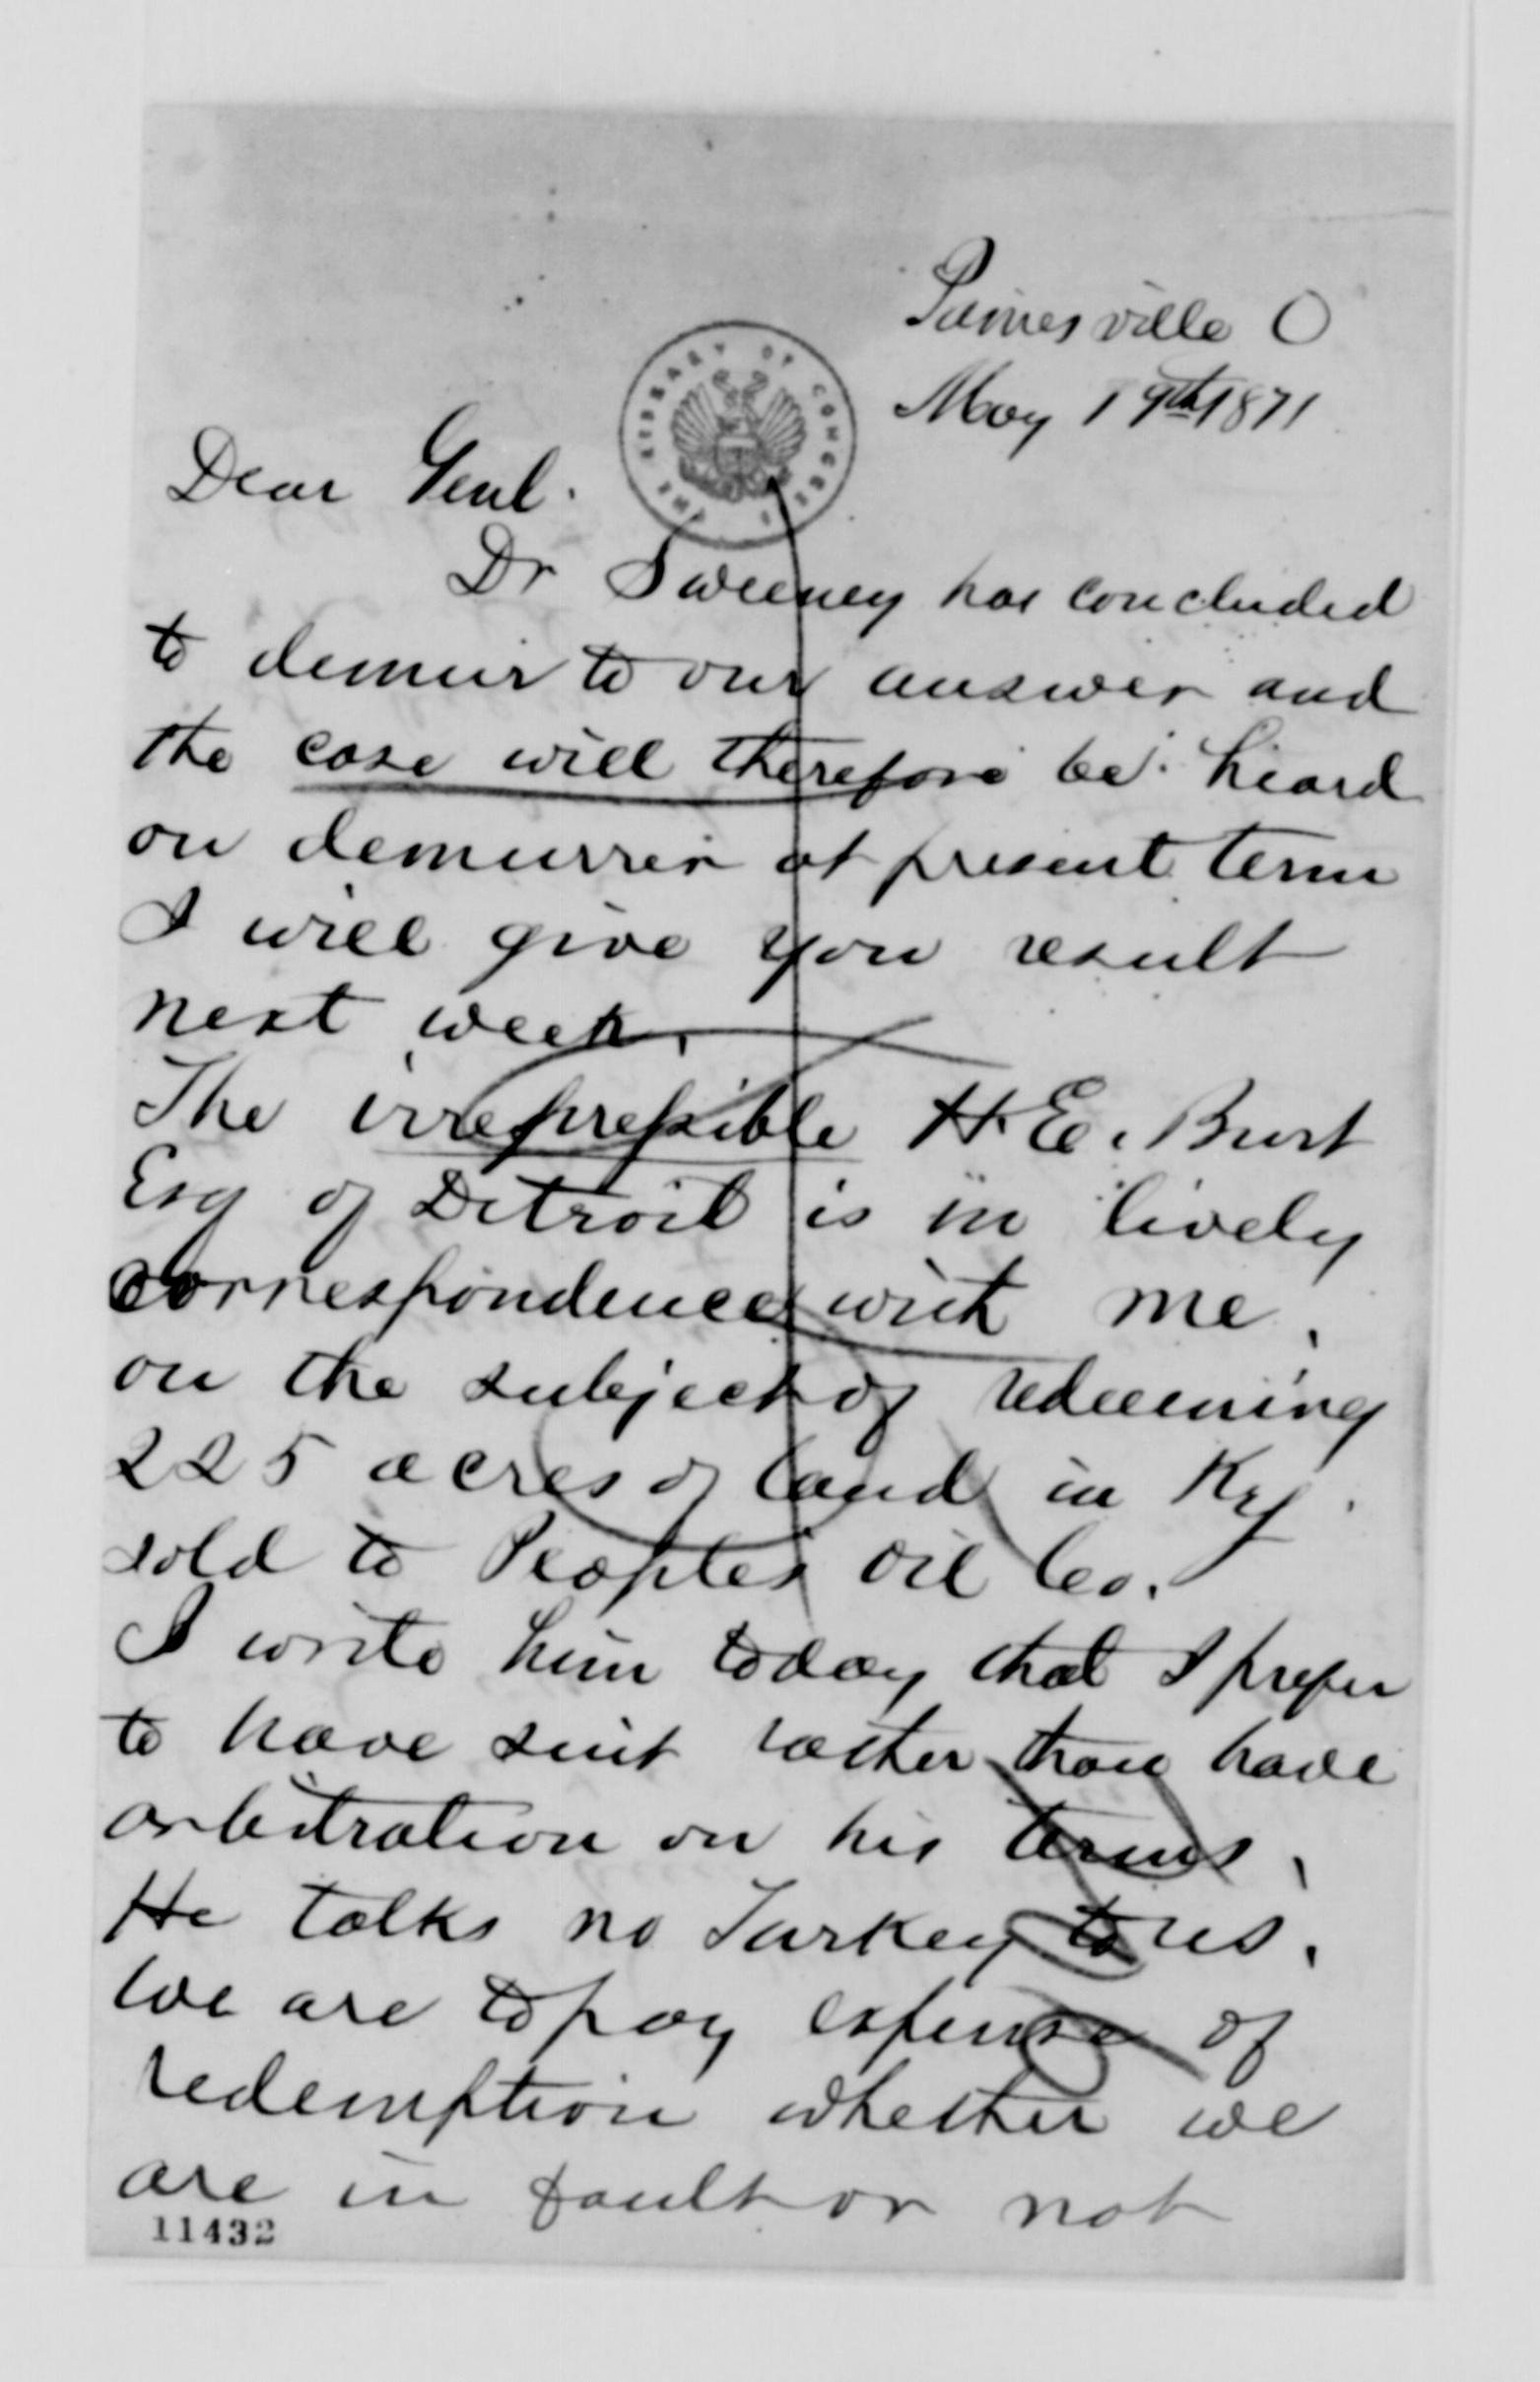 Painesville O
May 19th 1871
THE LIBRARY OF CONGRESS
Dear Genl.
Dr Sweeney has concluded
to demur to our answer and
the case will therefore be heard
on demurrer at present term
I will give you result
next week.
The irrepressible H. E. Burt
Esq of Detroit is in lively
correspondence with me,
on the subject of redeeming
225 acres of land in Ky.
sold to Peoples Oil Co.
I write him today that I prefer
to have suit rather than have
arbitration on his terms,
He talks no Turkey to us.
We are to pay expense of
redemption whether we
are in fault or not
11432